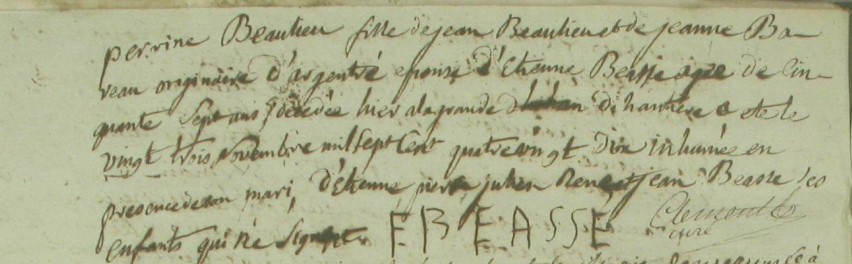 perrine Beaulieu fille de jean Beaulieu et de jeanne Ba-
reau originaire d'argentré epouse d'Etienne Beasse agée de Cin-
quante Sept ans décédée hier a la grande d'ihantière a ete le
vingt trois novembre mil Sept Cent quatre vingt dix inhumée en
presence de son mari, d'Etienne pierre julien René et jean Beasse ses
enfants qui ne Signent F B E A S S E Clement
curé